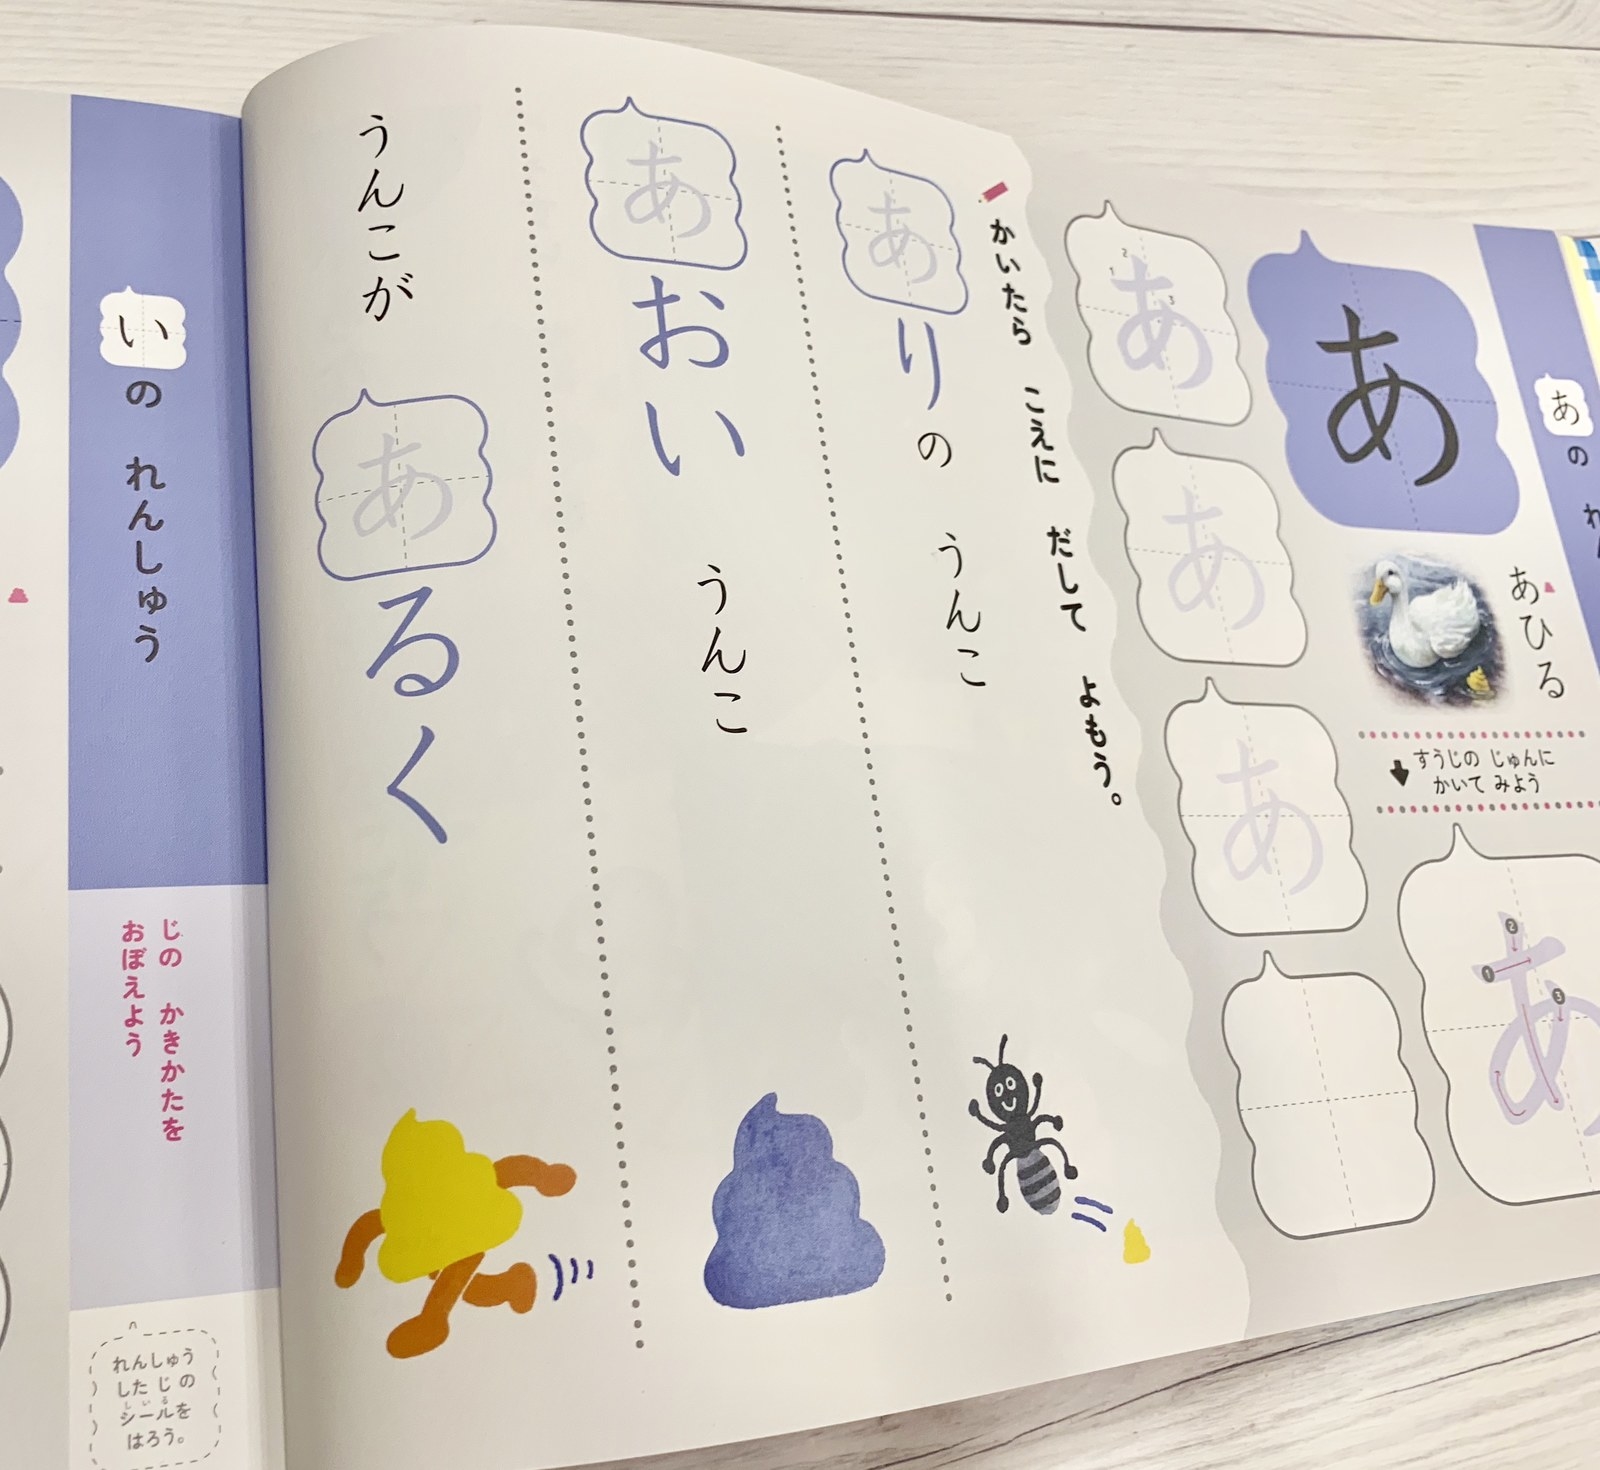 あの
あ
あひる
すうじの じゅんに
かいて みよう
あ
あ
あ
あ
かいたら こえに だして よもう。
ありの うんこ
あおい うんこ
うんこが あるく
いの れんしゅう
じの かきかたを
おぼえよう
れんしゅう
した じの
シールを
しいる
はろう。